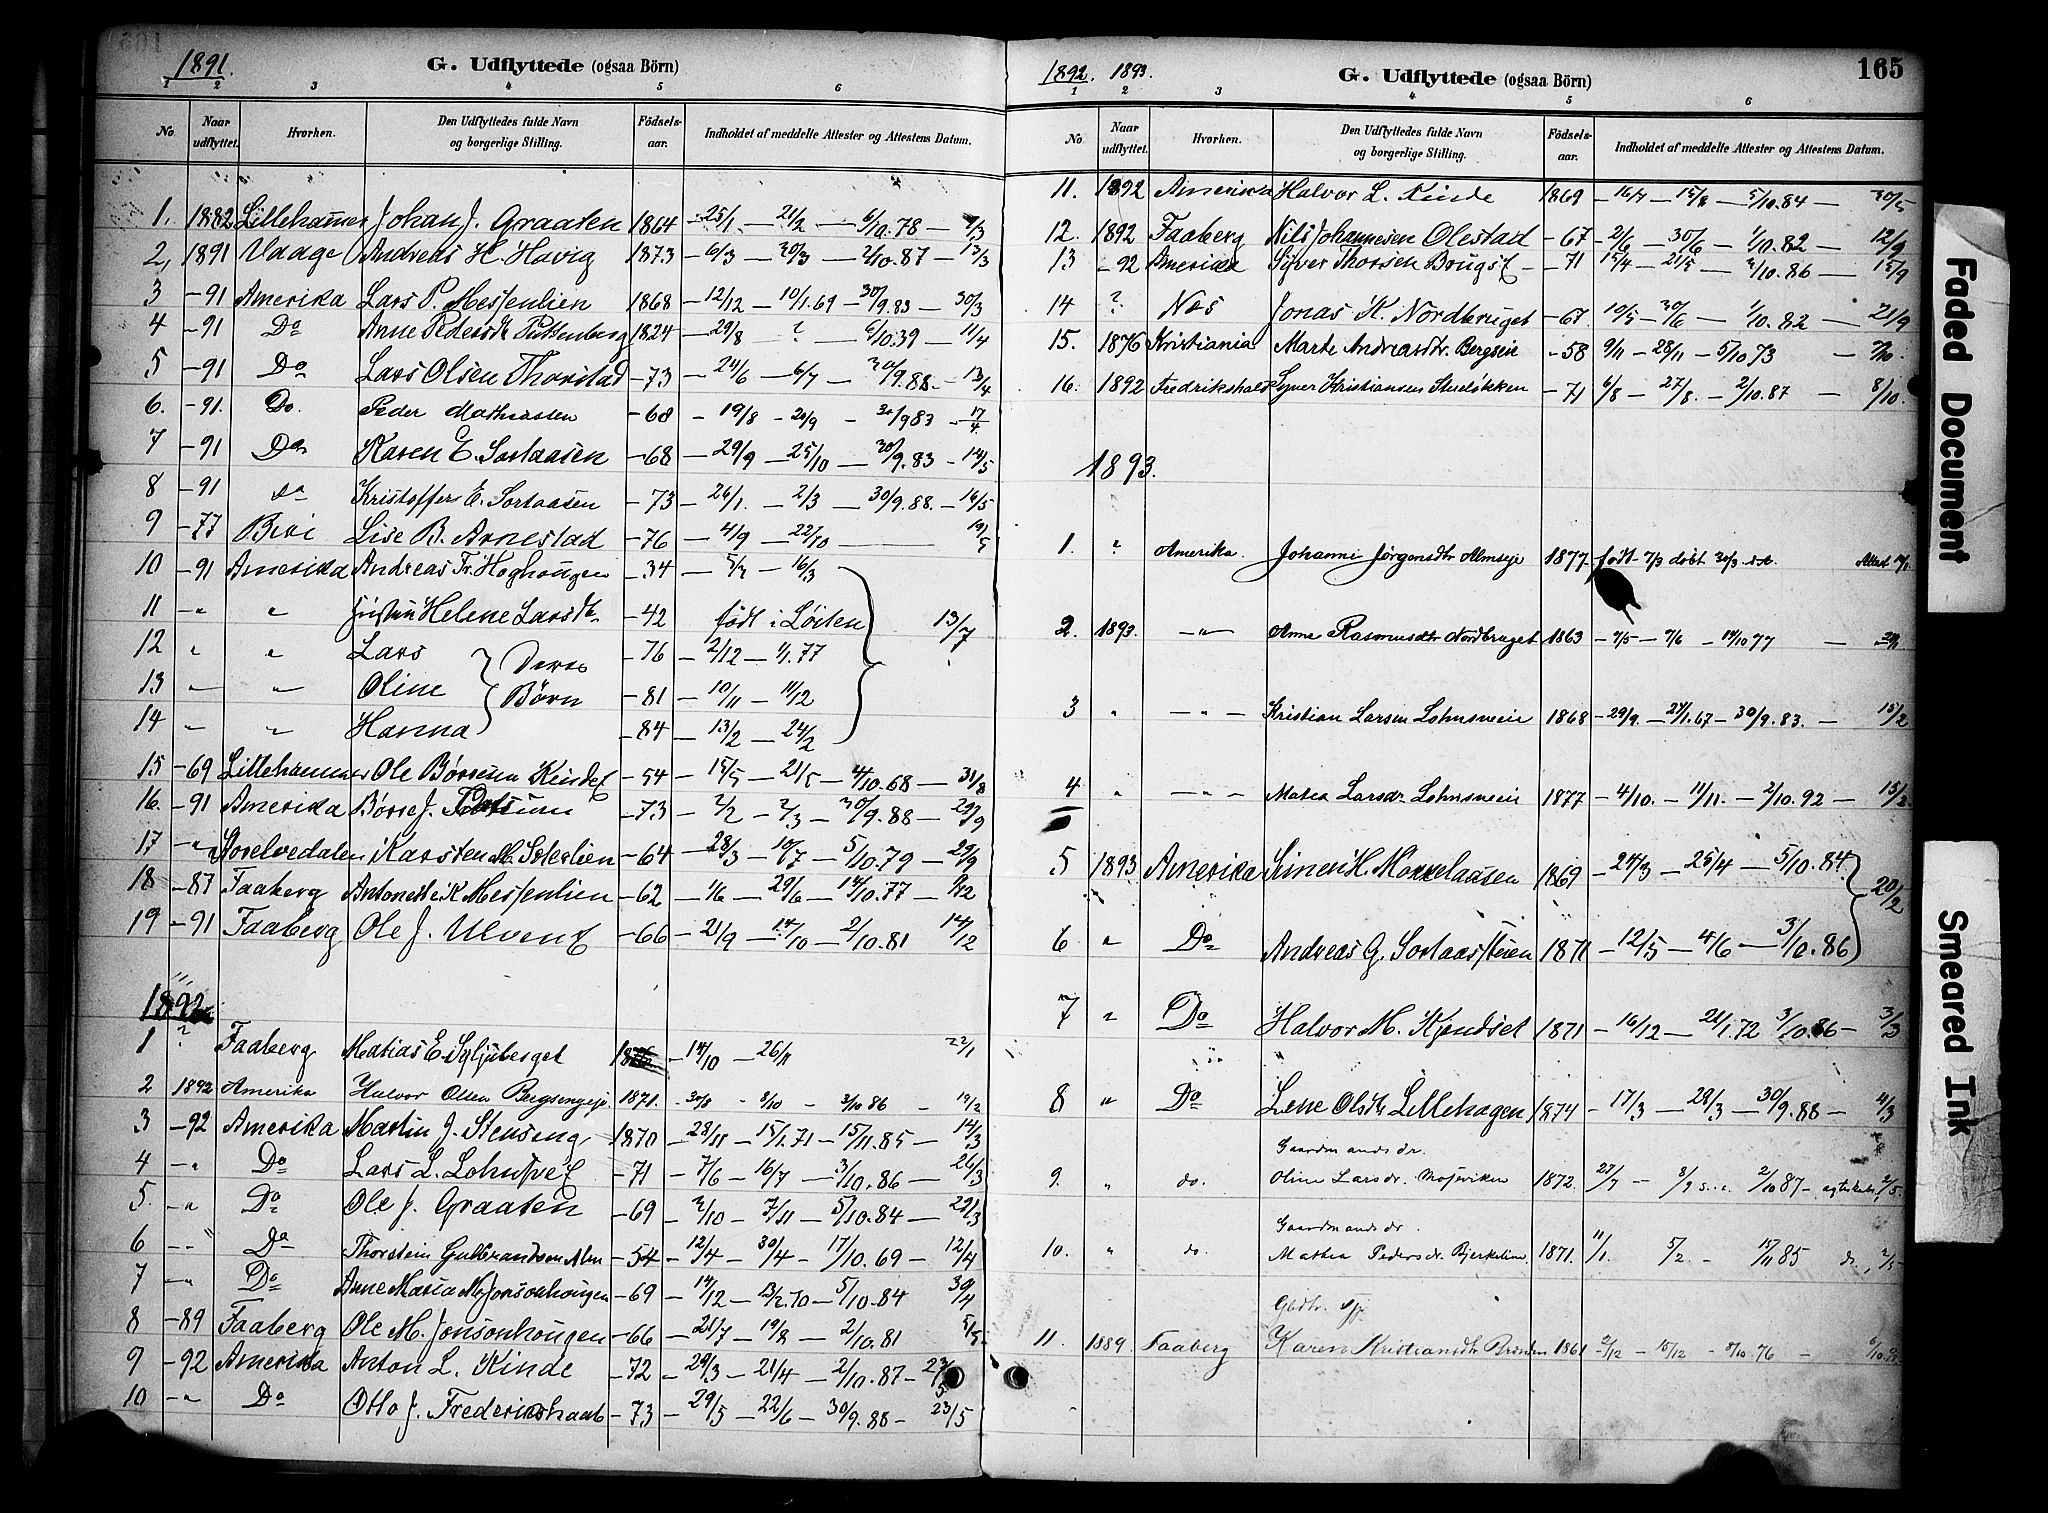 1891.
G. Udflyttede (ogsaa Börn)
1 2 3 4 5 6
No. Naar udflyttet. Hvorhen. Den Udflyttedes fulde Navn og borgerlige Stilling. Födselsaar. Indholdet af meddelte Attester og Attestens Datum.
1. 1882 Lillehammer Johan J. Graaten 1864 - 25/1 - 21/2 - 6/10.78 - 4/3
2, 1891 Vaage Andreas H. Havig 1873 - 6/3 - 30/3 - 2/10.87 - 13/3
3 -91 Amerika Lars P. Messenlien 1868 - 12/12 - 10/1.69 - 30/9.83 - 30/3
4 -91 Do Anne Pedersdr Puttenberg 1824 - 29/8 ? 6/10.39 - 11/4
5 -91 Do Lars Olsen Thorstad -73 - 24/6 - 6/7 - 30/9.88. - 13/4
6. -91. Do. Peder Mathiassen -68 - 19/8 - 20/9 - 30/9 83 - 17/4.
7 -91 Do Karen E. Sortaasen -68 - 29/9 - 25/10 - 30/9.83 - 14/5
8 -91 do Kristoffer E. Sortaasen -73 - 26/1. - 2/3 30/9.88. - 16/5
9 -77 Biri Lise B. Arnestad -76 - 4/9 - 22/10 - 19/5
10 -91 Amerika Andreas Fr. Høghougen -34 - 5/2 - 16/3
11 - " " Helene Larsdtr -42 født i Løiten 13/7
12 " " Lars -76 - 2/12 - 1/1.77
13 " " Oline Deres Børn -81 - 10/11 - 11/12
14 " " Hanna -84 - 13/2 - 24/2
15 -69 Lillehammer Ole Børresen Kindes -54 - 15/5 - 21/5 - 4/10.68 - 31/8
16. -91 Amerika Børre J. -73 - 2/2 - 2/3 - 30/9.88 - 29/9
17 - " Karsten M. -64 - 28/3 - 10/7 - 5/10.79 - 29/9
18 -87 Faaberg Antonette K. Messenlien -62 - 1/6 - 29/6 - 14/10.77 -
19 -91 Faaberg Ole J. Ulvens -66 - 21/9 - 14/10 - 2/10.81 14/12
1892
1 ? Faaberg Matias E. Syljuberget - 14/10 - 26/11 22/1
2 1892 Amerika Halvor Olsen Bergsengeje 1871. - 30/8 - 8/10 - 3/10 86 - 19/2
3 -92 Amerika Martin J. Stenseng 1870 - 28/11 - 15/1.71 - 15/11.85 - 14/3
4 - " Do Lars L. -71 - 7/6 - 16/7 - 3/10.86 - 26/3
5. - " Do Ole J. Graaten -69 - 2/10 - 7/11 - 5/10.84 - 28/3
6 - " Do Thorstein Gulbrandsen Alm -54 - 12/4 - 30/4 - 17/10.69 - 12/4
7 - " Do Anne Maria M. Jonsonhougen -69 - 14/12 - 13/2.70 - 5/10.84 30/4
8 -89 Faaberg Ole M. Jonsonhougen -66 - 21/7 - 19/8 - 2/10.81 5/5
9 -92 Amerika Anton L. Kinde -72 - 29/3 - 21/4 - 2/10.87 - 23/5
10 - " Do Otto J. Frederikshaab -73 - 29/5 - 22/6 - 30/9.88 - 23/5
1892. 1893.
G. Udflyttede (ogsaa Börn)
165
1 2 3 4 5 6
No Naar udflyttet. Hvorhen. Den Udflyttedes fulde Navn og borgerlige Stilling. Födselsaar. Indholdet af meddelte Attester og Attestens Datum.
11. 1892 Amerika Halvor L. Kinde 1869 - 16/7 - 15/8 - 5/10.84 - 30/5
12. 1892 Faaberg Nils Johannesen Olestad -67 - 2/6 - 30/6 - 1/10.82 - 12/9
13 -92 Amerika Syver Thorsen -71 15/4 - 21/5 - 2/10.86 - 15/9
14 ? Næs Jonas K. Nordbruget -67. 10/5 - 30/6 - 1/10.82 - 21/9
15. 1876 Kristiania Marte Andreasdtr. Bergsein -58 9/11 - 28/11 - 5/10 73 -
16. 1892 Fredrikshald Syver Kristiansen Stueløkken -71 6/8 - 27/8. - 2/10.87 - 8/10.
1893.
1. ? Amerika. Johanne Jørgensdtr 1877. født 7/3 døbt 30/3 s.A.
2. 1893. - " - Anne Rasmusdtr Nordbruget 1863 - 7/5 - 7/6 - 14/10 77 -
3 " - " - Kristian Larsen Lohnsveen 1868 - 29/9. - 24/1.67 - 30/9.83. - 15/2
4 " - " - Matea Larsdr Lohnsveen 1877 - 4/10. - 11/11. - 2/10.92 - 15/2.
5 1893 Amerika Simen H. 1869 - 24/3 - 25/4 - 5/10.84. 20/2
6 " Do Andreas G. Sortaasstuen 1871 - 12/5 - 4/6 - 3/10.86
7 " Do Halvor M. Kjendset 1871 - 16/12 - 21/1.72 3/10.86 - 3/3
8 " Do Lene Olsdtr Lillehagen 1874 - 17/3 - 29/3 - 30/9.88 - 4/3
Gaardmandsdr.
9. " do. Oline Larsdr. 1872. 27/7 - 8/9 2/10 87 - 2/5.
Gaardmandsdr.
10. " do. Mathea Pedersdr. Bjerkelien 1871. 11/1. 5/2. - 15/11 85
11. 1889 Faaberg Karen Kristiansdtr 1861 2/12 - 15/12 - 8/10.76 -
Faded Document
Smeared Ink